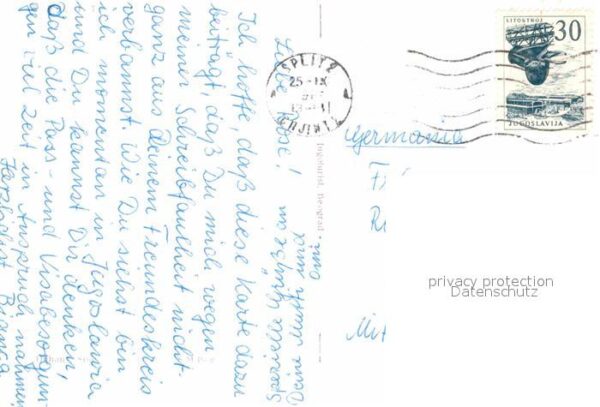 Liebe !
Ich hoffe, daß diese Karte dazu
beiträgt, daß Du mich wegen
meiner Schreibfaulheit nicht
ganz aus Deinem Freundeskreis
verbannst. Wie Du siehst bin
ich momentan in Jugoslawia
und Du kannst Dir denken,
daß die Pass- und Visabesorgun-
gen viel Zeit in Anspruch nahmen
Herzlichst Bianca
Spezielle Grüße an
Deine Mutti und
Omi.
Jugoturist, Beograd
SPLIT 2
25-IX
СПЛИТ 2
LITOSTROJ
30
JUGOSLAVIJA
Germania
privacy protection
Datenschutz